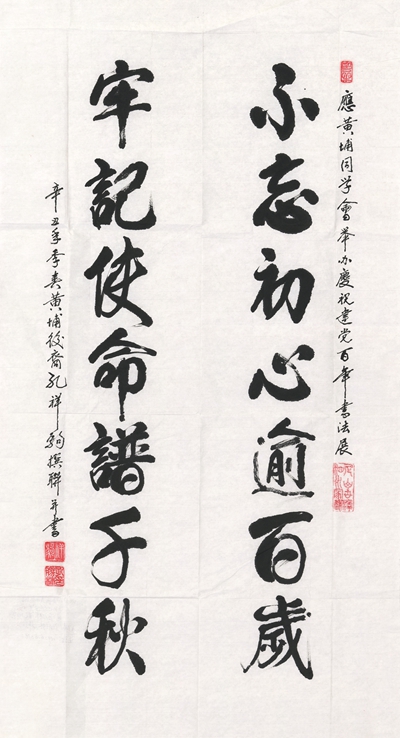 應黃埔同学會举办慶祝建党百年書法展
不忘初心逾百歲
牢記使命譜千秋
辛丑年季春黃埔後裔孔祥駒撰聯并書